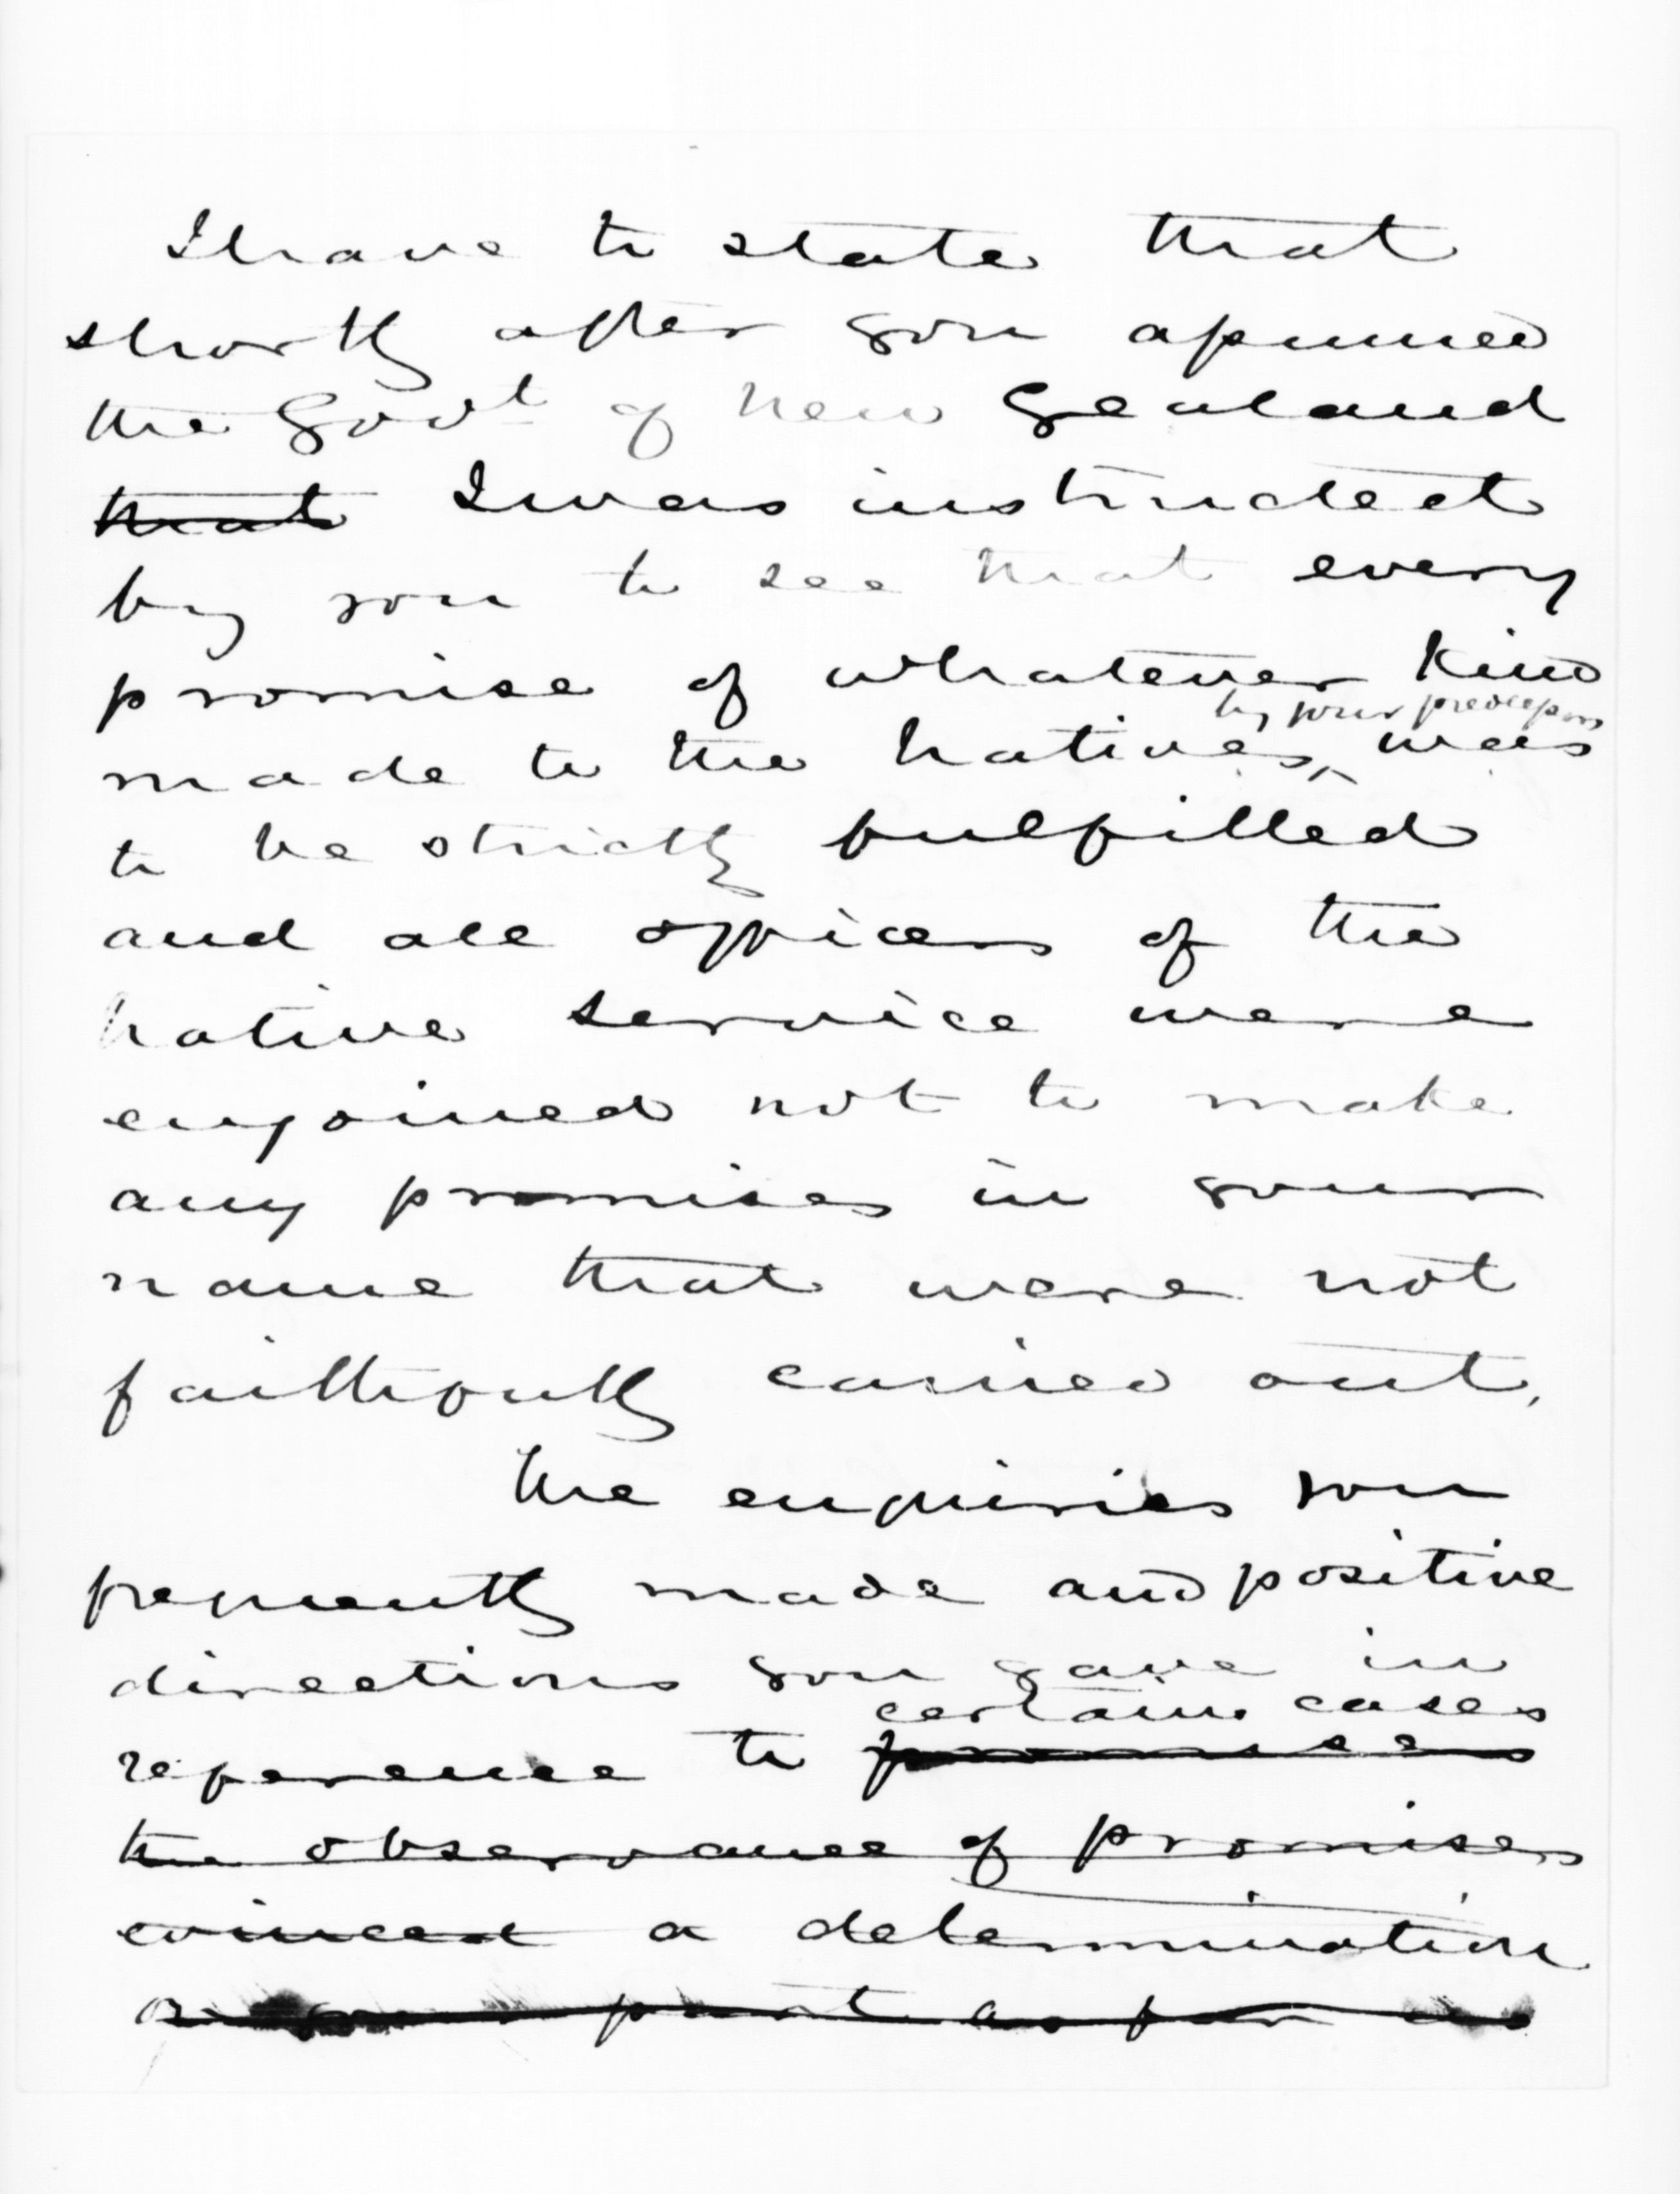 I have to state that
shortly after you assumed
the Govt of New Zealand
that I was instructed
by you to see that every
promise of whatever kind
by your predecessors
made to the Natives, was
to be strictly fulfilled
and all officers of the
Native Service were
enjoined not to make
any promises in your
name that were not
faithfully carried out.
The enquiries you
frequently made and positive
directions you gave in
certain cases
reference to promises
the observance of promises
evinced a determination
on your part as far as